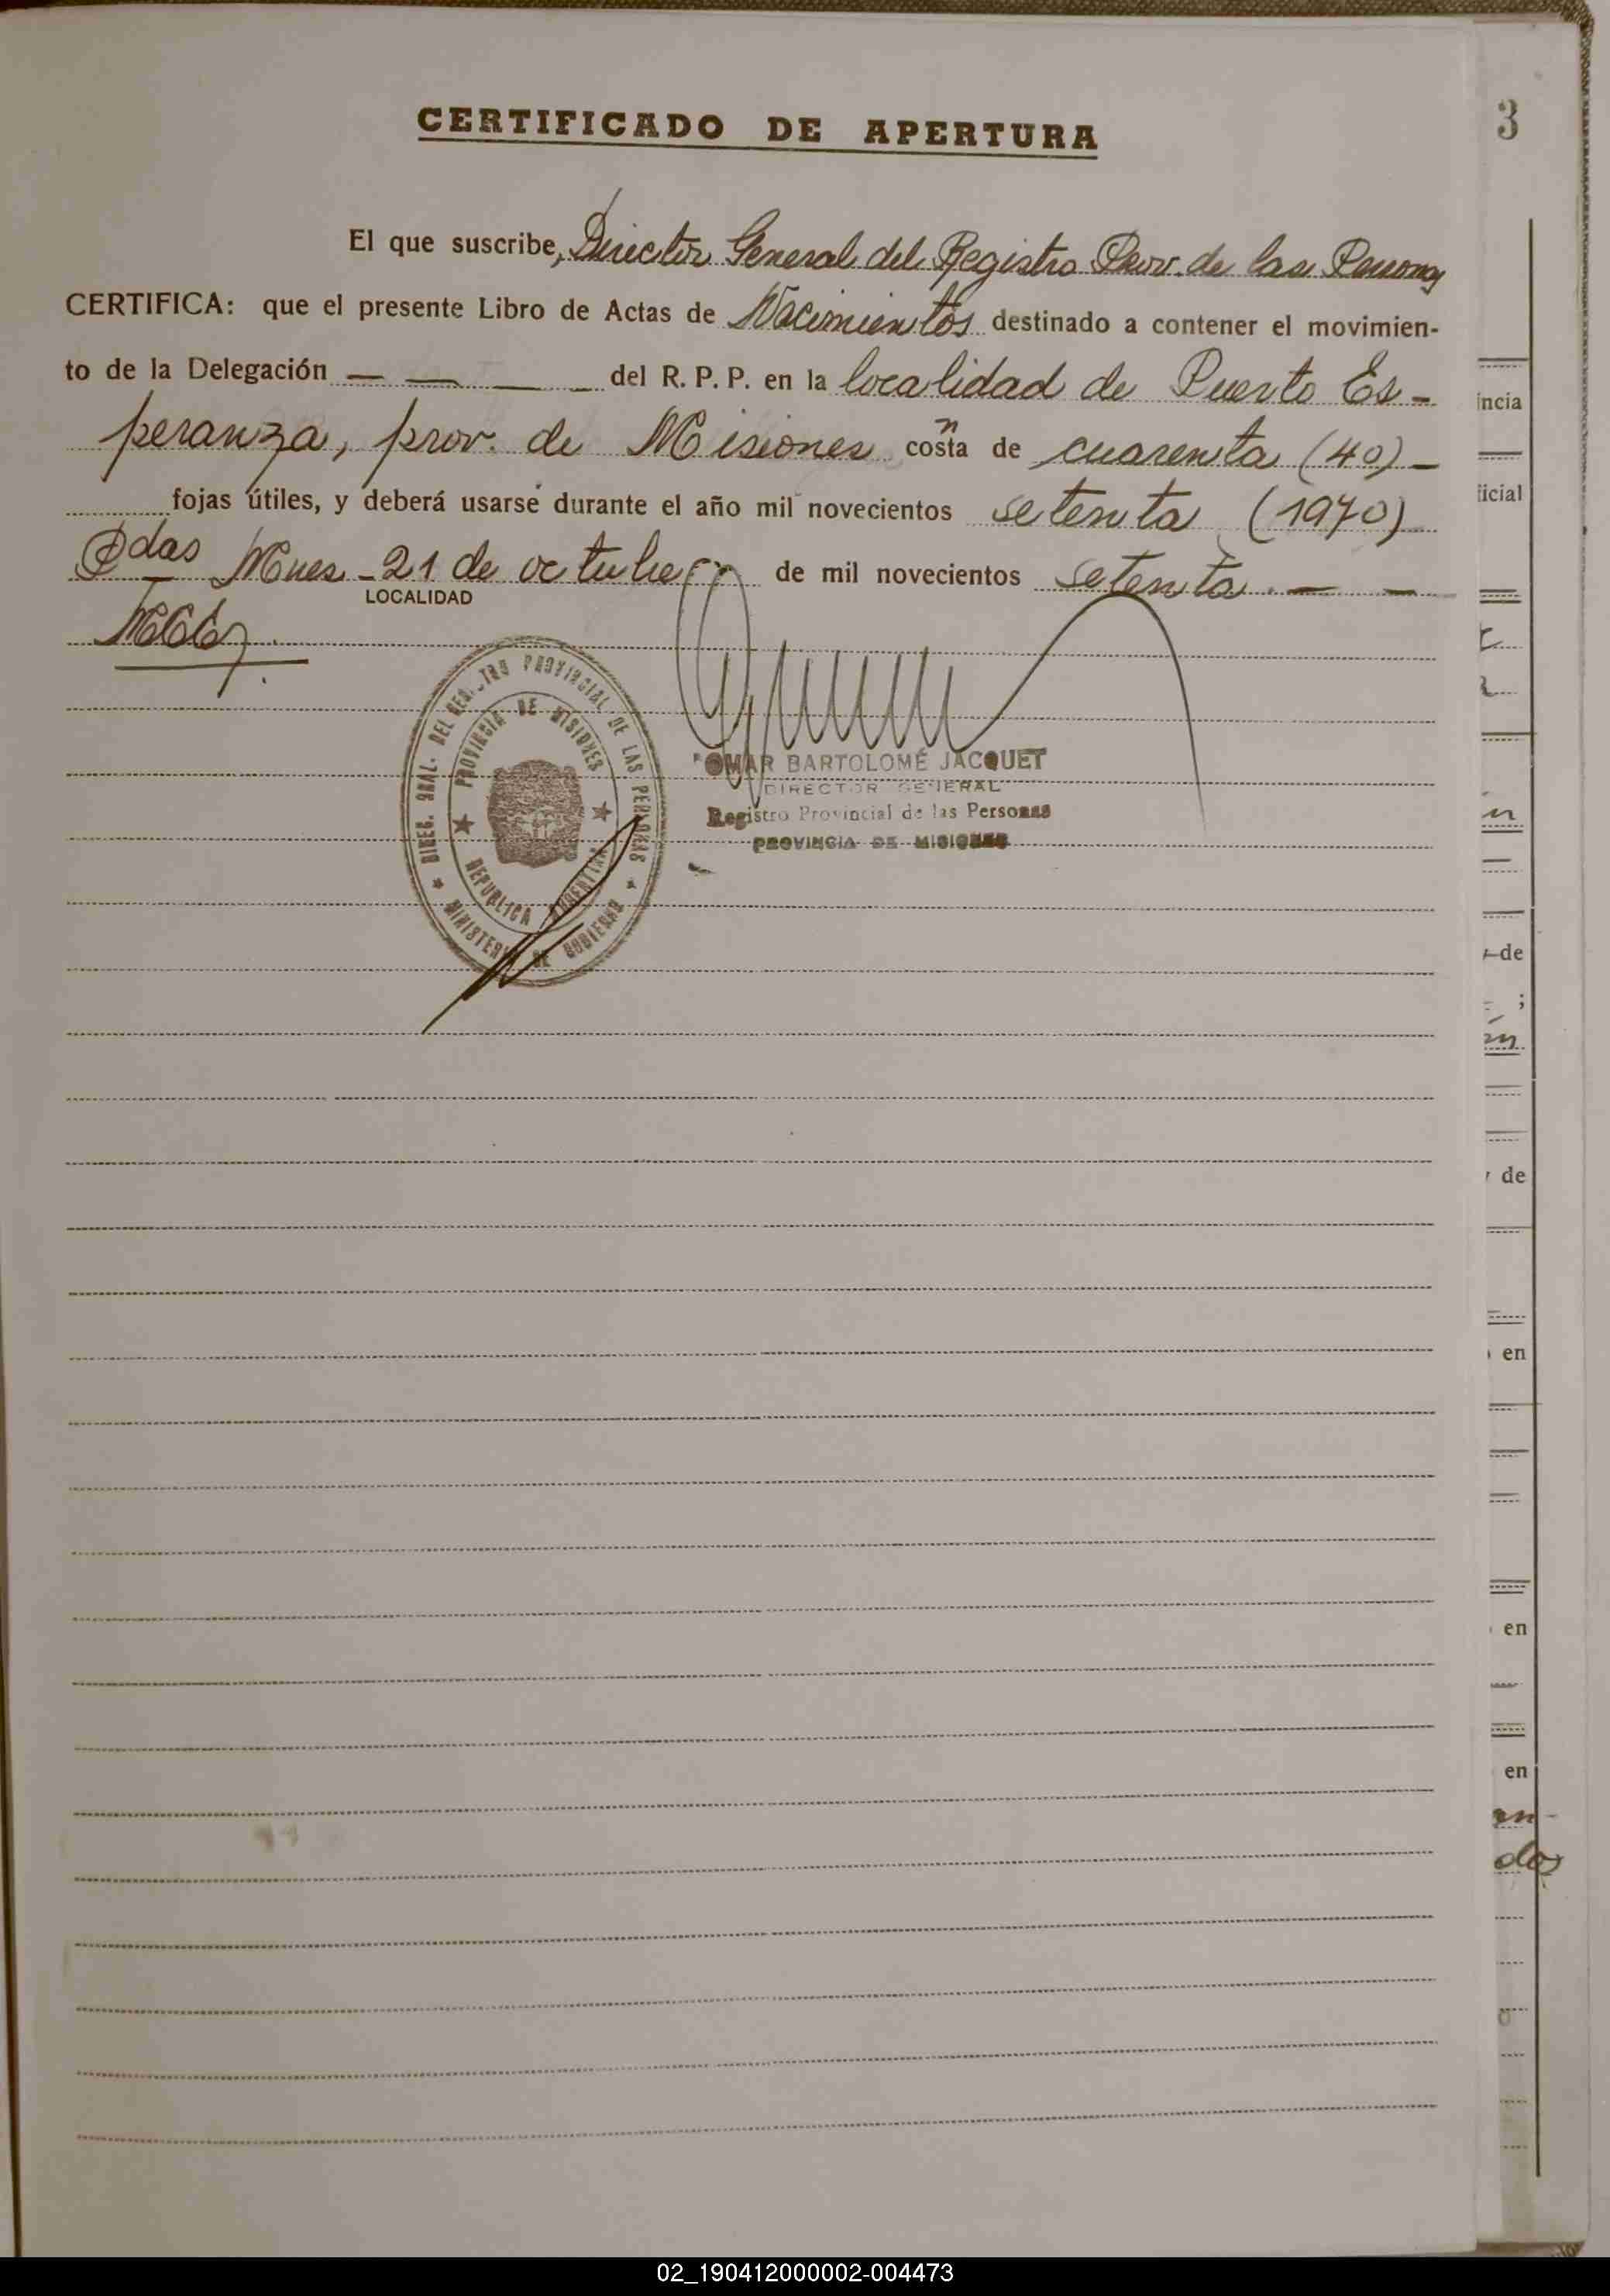 CERTIFICADO DE APERTURA
3
El que suscribe, Director General del Registro Prov. de las Personas
CERTIFICA: que el presente Libro de Actas de Nacimientos destinado a contener el movimien-
to de la Delegación — — — — del R. P. P. en la localidad de Puerto Es-
peranza, prov. de Misiones consta de cuarenta (40) —
fojas útiles, y deberá usarse durante el año mil novecientos setenta (1970)
Pdas Mnes - 21 de octubre de mil novecientos setenta. — —
LOCALIDAD
DIREC. GRAL. DEL REGISTRO PROVINCIAL DE LAS PERSONAS
PROVINCIA DE MISIONES
REPUBLICA ARGENTINA
MINISTERIO DE GOBIERNO
OMAR BARTOLOMÉ JACQUET
DIRECTOR GENERAL
Registro Provincial de las Personas
PROVINCIA DE MISIONES
ncia
icial
de
;
de
en
en
en
dos
02_190412000002-004473